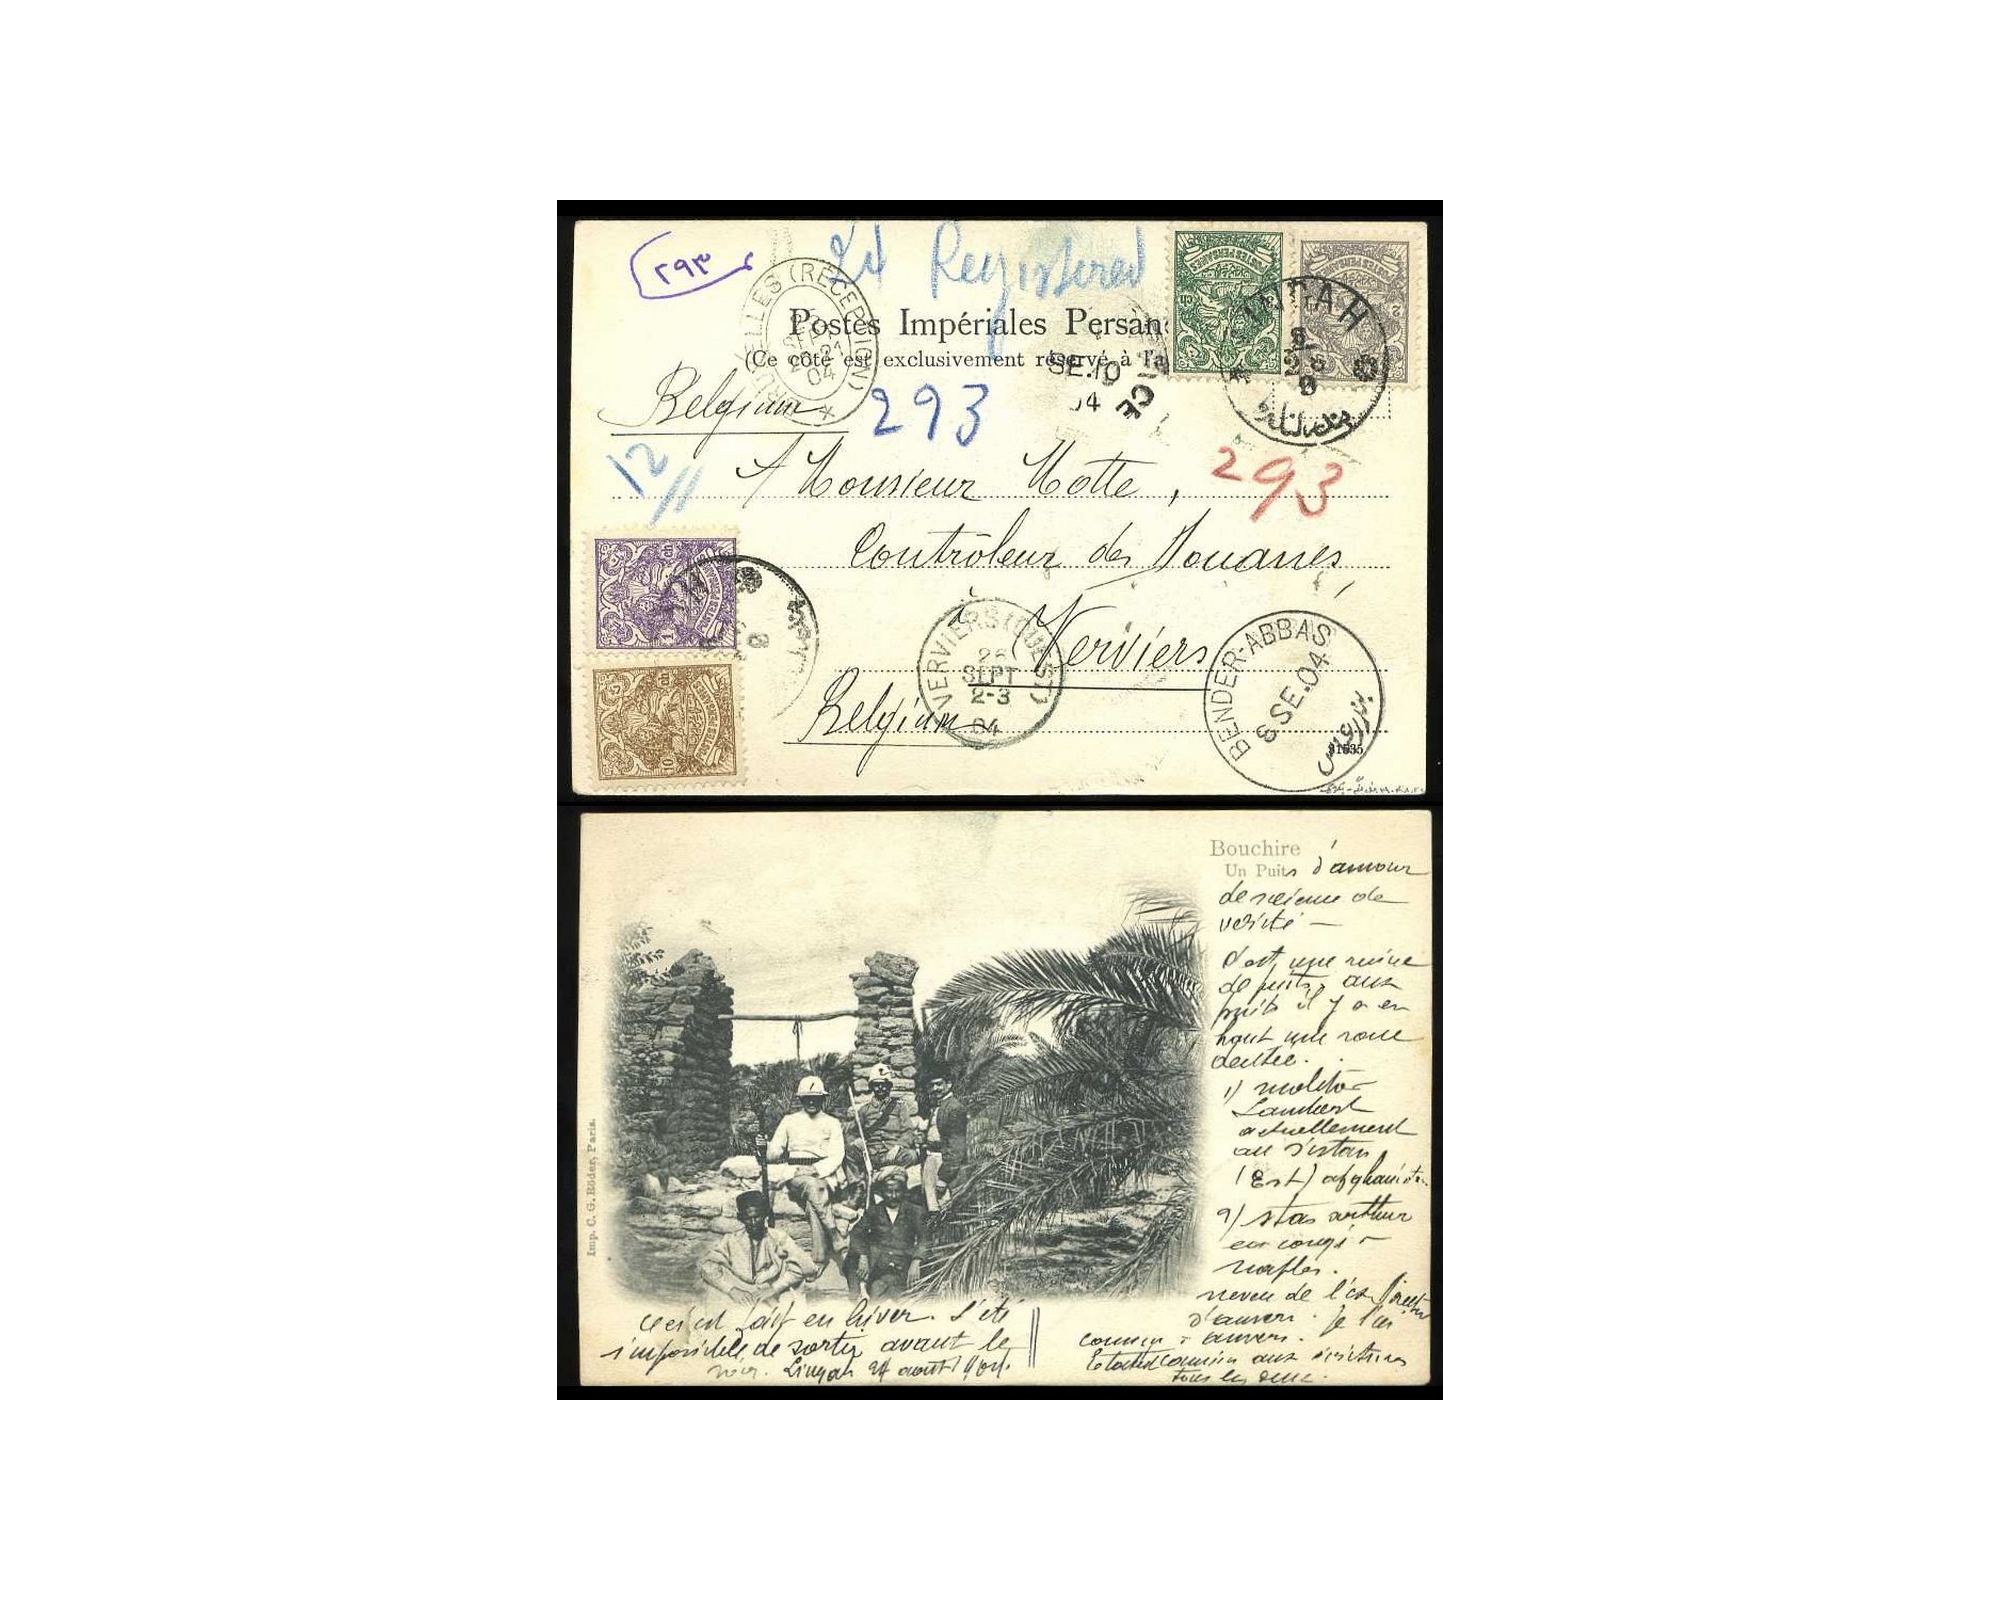 ۲۹۳
Registered
BRUXELLES (RECEPTION)
04
Postes Impériales Persan
(Ce côté est exclusivement réservé à l'a
SE.10
04
POSTES PERSANES
POSTES PERSANES
LINGAH
Belgium
293
12/11
293
A Monsieur Motte,
Contrôleur des Douanes,
à Verviers
Belgium
VERVIERS (OUEST)
26
SEPT
2-3
04
BENDER-ABBAS
8 SE.04
Bouchire
Un Puits d'amour
de
verité —
C'est une ruine
de puits, aux
puits il y a en
haut une roue
dentée.
1) Molitor
Lambert
actuellement
au Sistan
(Est) afghanist
2) Stas Arthur
en congé à
Naples.
neveu de l'
d'Anvers. Je l'ai
connu à Anvers.
Etant Commis aux écritures
tous les deux.
Ceci est fait en hiver. L'été
impossible de sortir avant le
soir. Lingah 24 août 1904.
Imp. C. G. Röder, Paris.